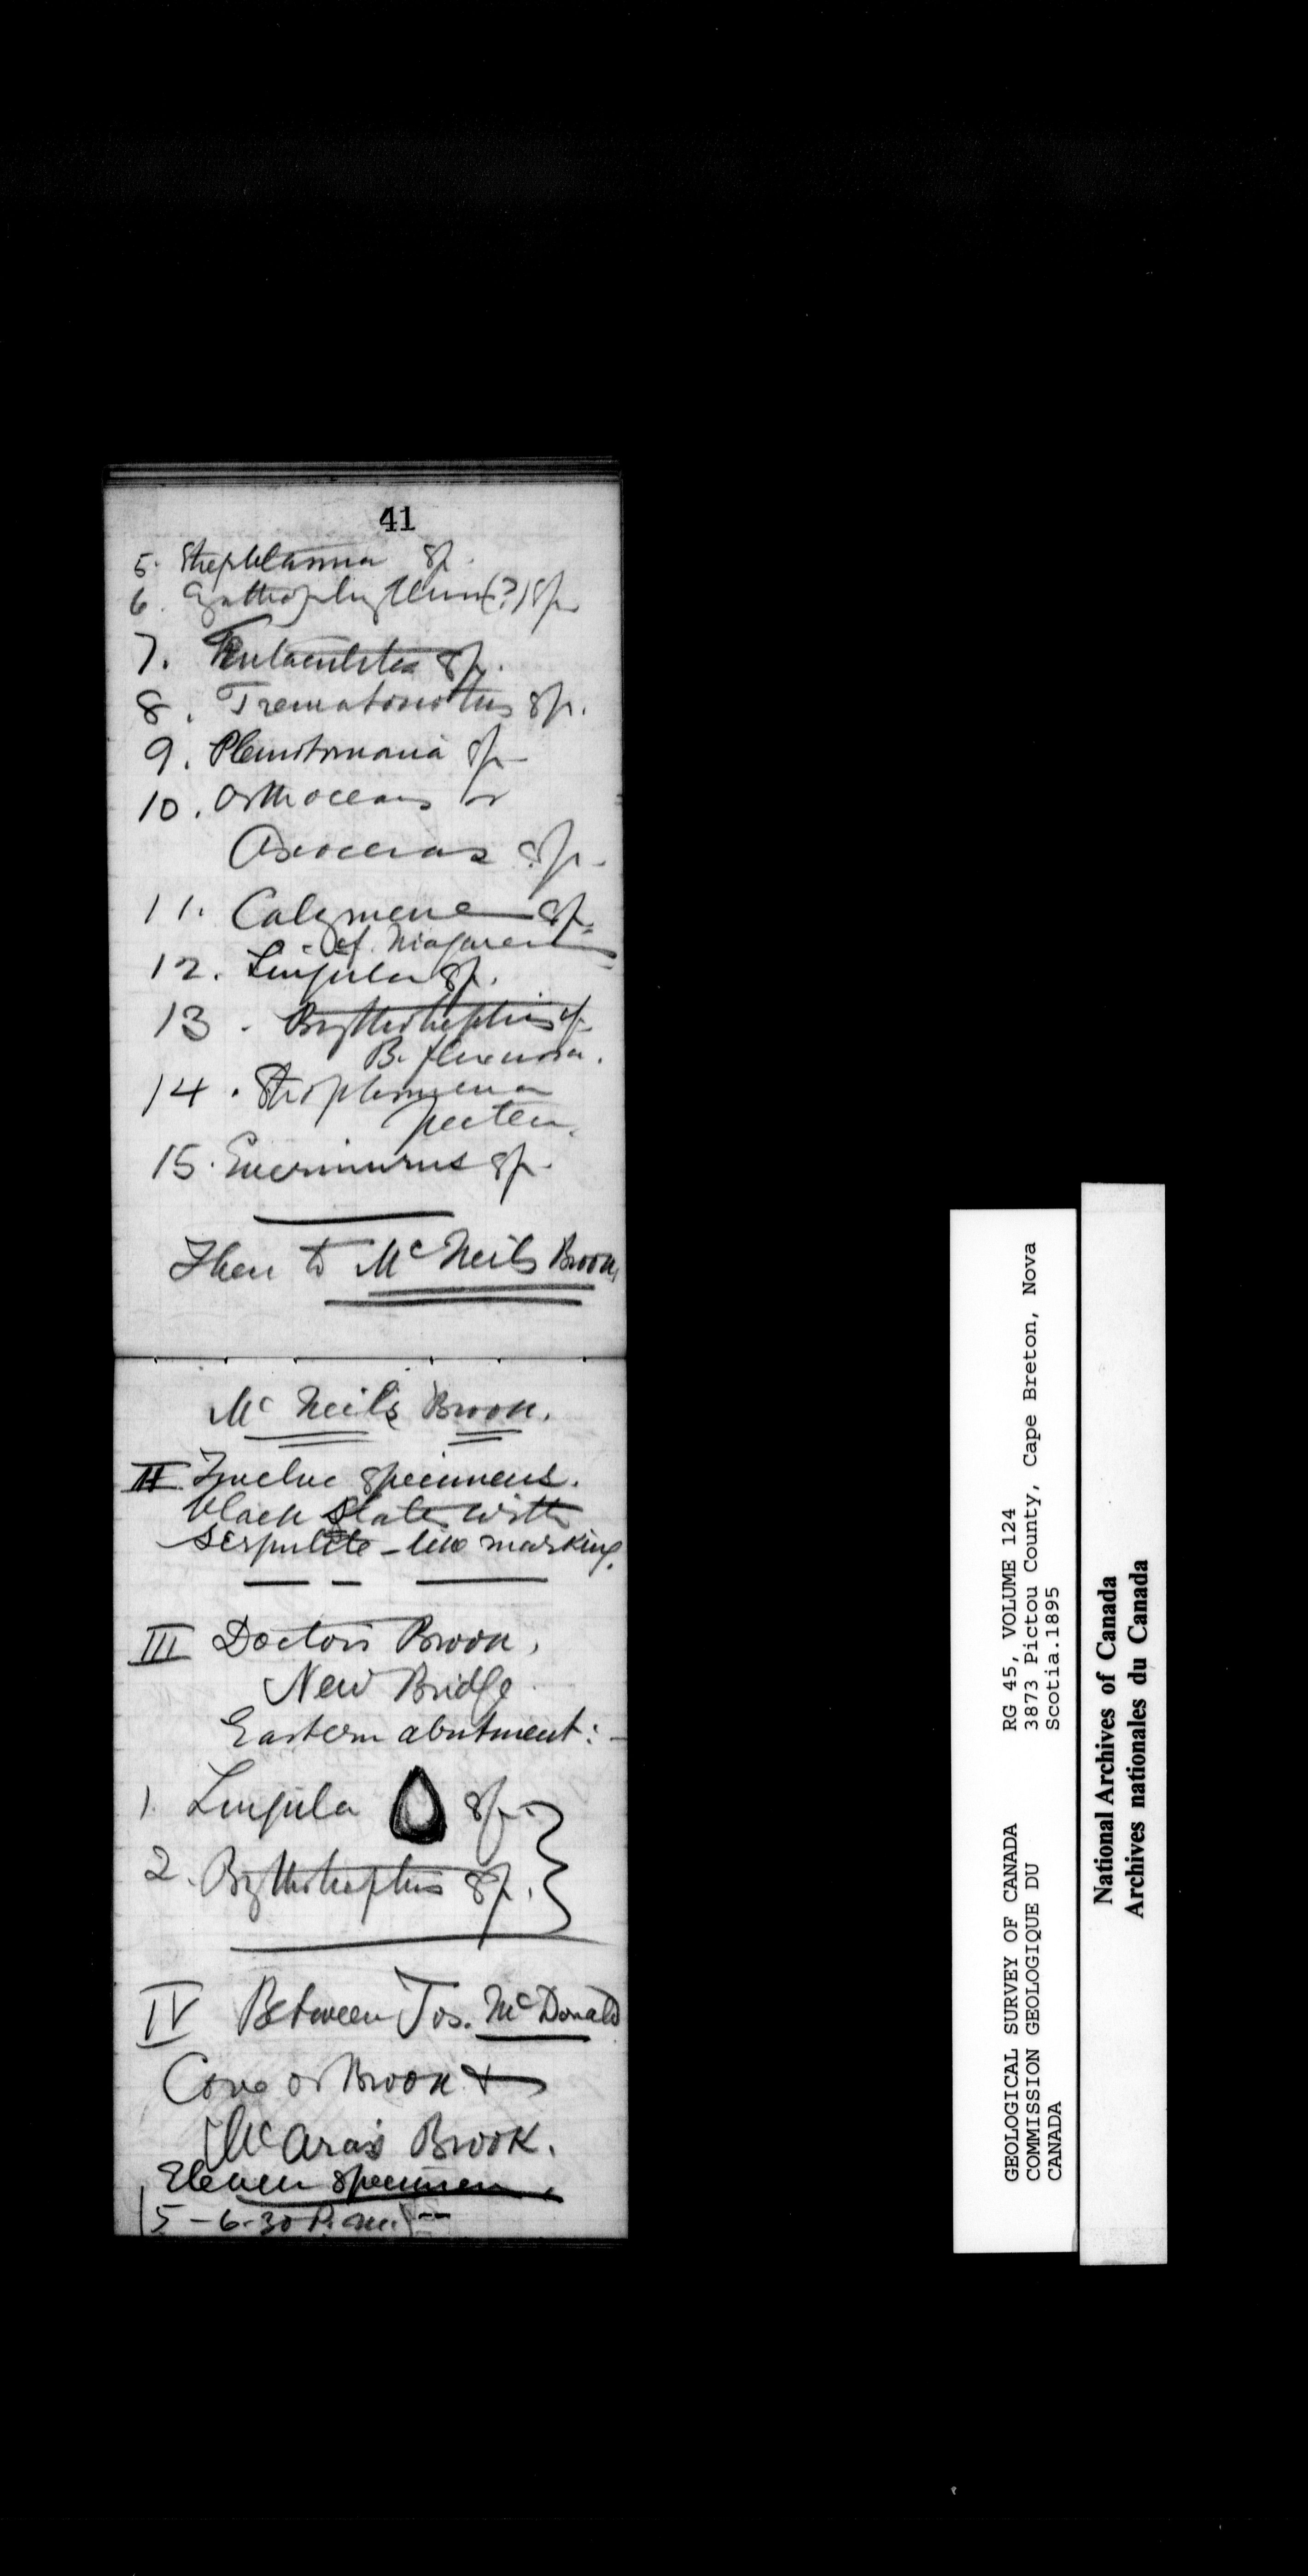 41
5. Streptelasma sp.
6. Cyathophyllum (?) sp.
7. Tentaculites sp.
8. Trematonotus sp.
9. Pleurotomaria sp.
10. Orthoceras or
Ascoceras sp.
11. Calymene sp.
cf. Niagarensis
12. Lingula sp.
13. Bythotrephis cf.
B. flexuosa.
14. Strophomena
pecten.
15. Encrinurus sp.
Then to McNeils Brook,
Mc Neil's Brook.
II Twelve specimens.
black slates with
serpulite-like marking.
III Doctors Brook,
New Bridge
Eastern abutment:-
1. Lingula sp.
2. Bythotrephis sp.
IV Between Jos. McDonald
Cove or Brook &
McAras Brook.
Eleven specimens.
(5-6.30 P.M.)--
GEOLOGICAL SURVEY OF CANADA RG 45, VOLUME 124
COMMISSION GEOLOGIQUE DU 3873 Pictou County, Cape Breton, Nova
CANADA Scotia.1895
National Archives of Canada
Archives nationales du Canada